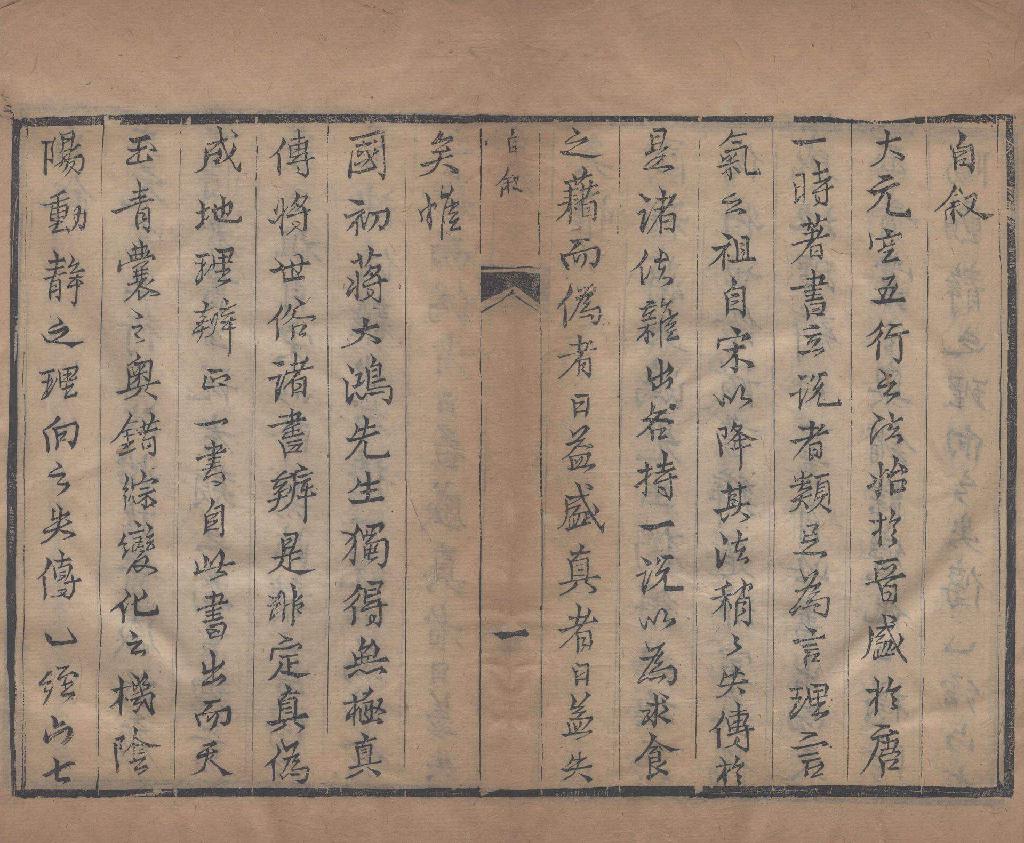 自叙
大元空五行之法始於晉盛於唐
一時著書立說者類足為言理言
氣之祖自宋以降其法稍〻失傳於
是諸偽雜出各持一說以為求食
之藉而偽者日益盛真者日益失
矣惟
自叙
一
國初蔣大鴻先生獨得無極真
傳將世俗諸書辨是非定真偽
成地理辨正一書自此書出而天
玉青囊之奧錯綜變化之機陰
陽動靜之理向之失傳已經六七